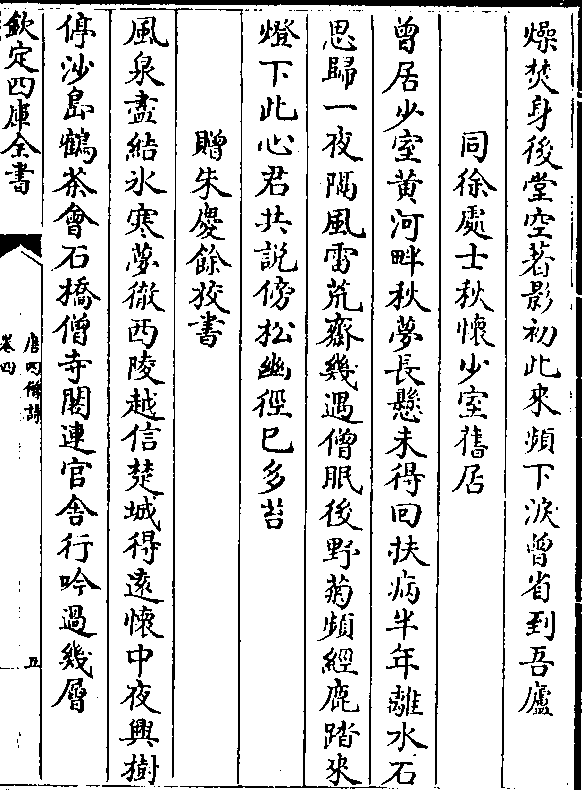 燥焚身後堂空著影初此來頻下淚曾省到吾廬
同徐處士秋懷少室舊居
曾居少室黄河畔秋夢長懸未得回扶病半年離水石
思歸一夜隔風雷荒齋幾遇僧眠後野菊頻經鹿踏來
燈下此心君共說傍松幽徑已多苔
贈朱慶餘挍書
風泉盡結氷寒夢徹西陵越信楚城得逺懷中夜興樹
停沙島鶴茶會石橋僧寺閣連官舍行吟過幾層
欽定四庫全書
唐四僧詩
卷四
五